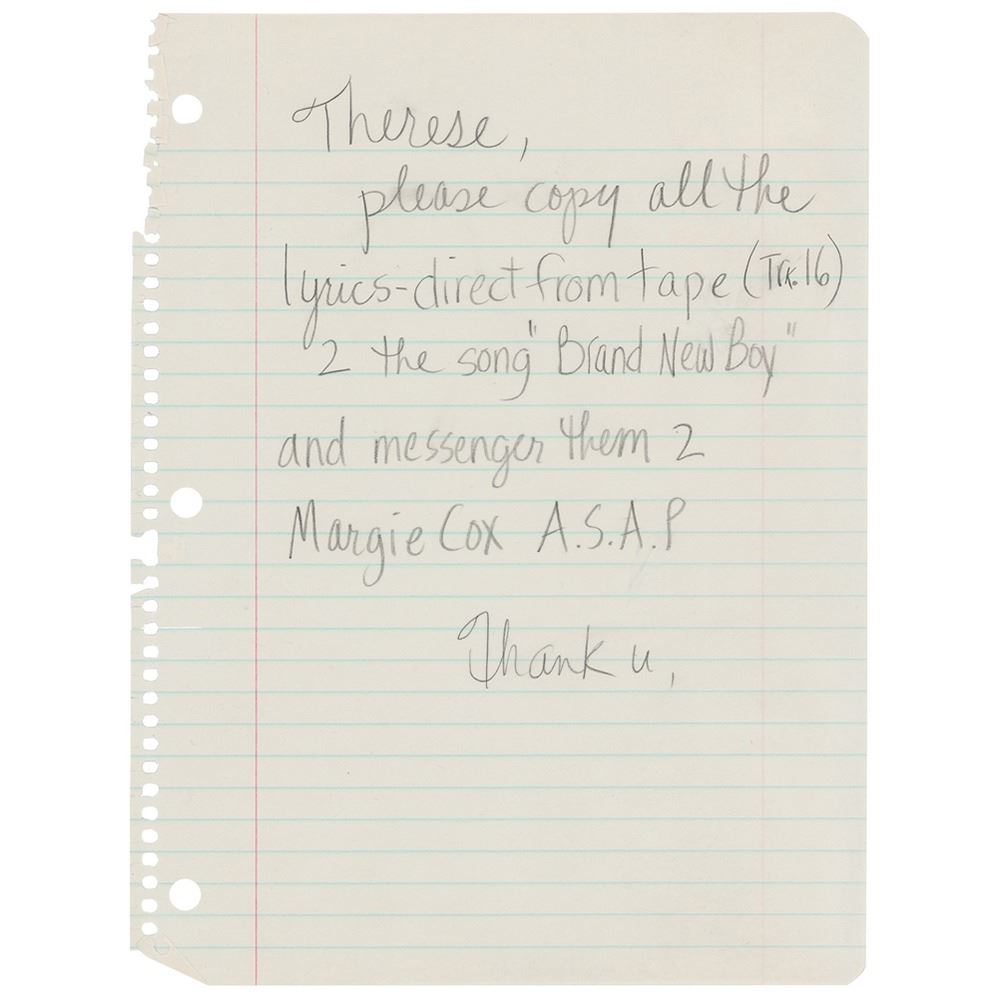 Therese,
please copy all the
lyrics-direct from tape (Trk.16)
2 the song "Brand New Boy"
and messenger them 2
Margie Cox A.S.A.P
Thank u,